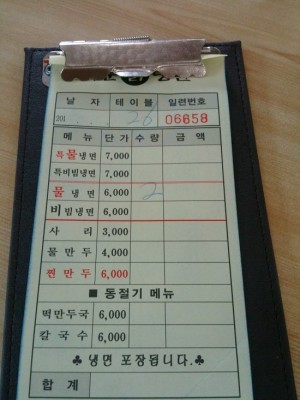 날 자 테이블 일련번호
201 . . . . 26 06658
메 뉴 단 가 수 량 금 액
특물냉면 7,000
특비빔냉면 7,000
물 냉 면 6,000 2
비빔냉면 6,000
사 리 3,000
물 만 두 4,000
찐 만 두 6,000
■ 동절기 메뉴
떡만두국 6,000
칼 국 수 6,000
♣ 냉면 포장됩니다.♣
합 계